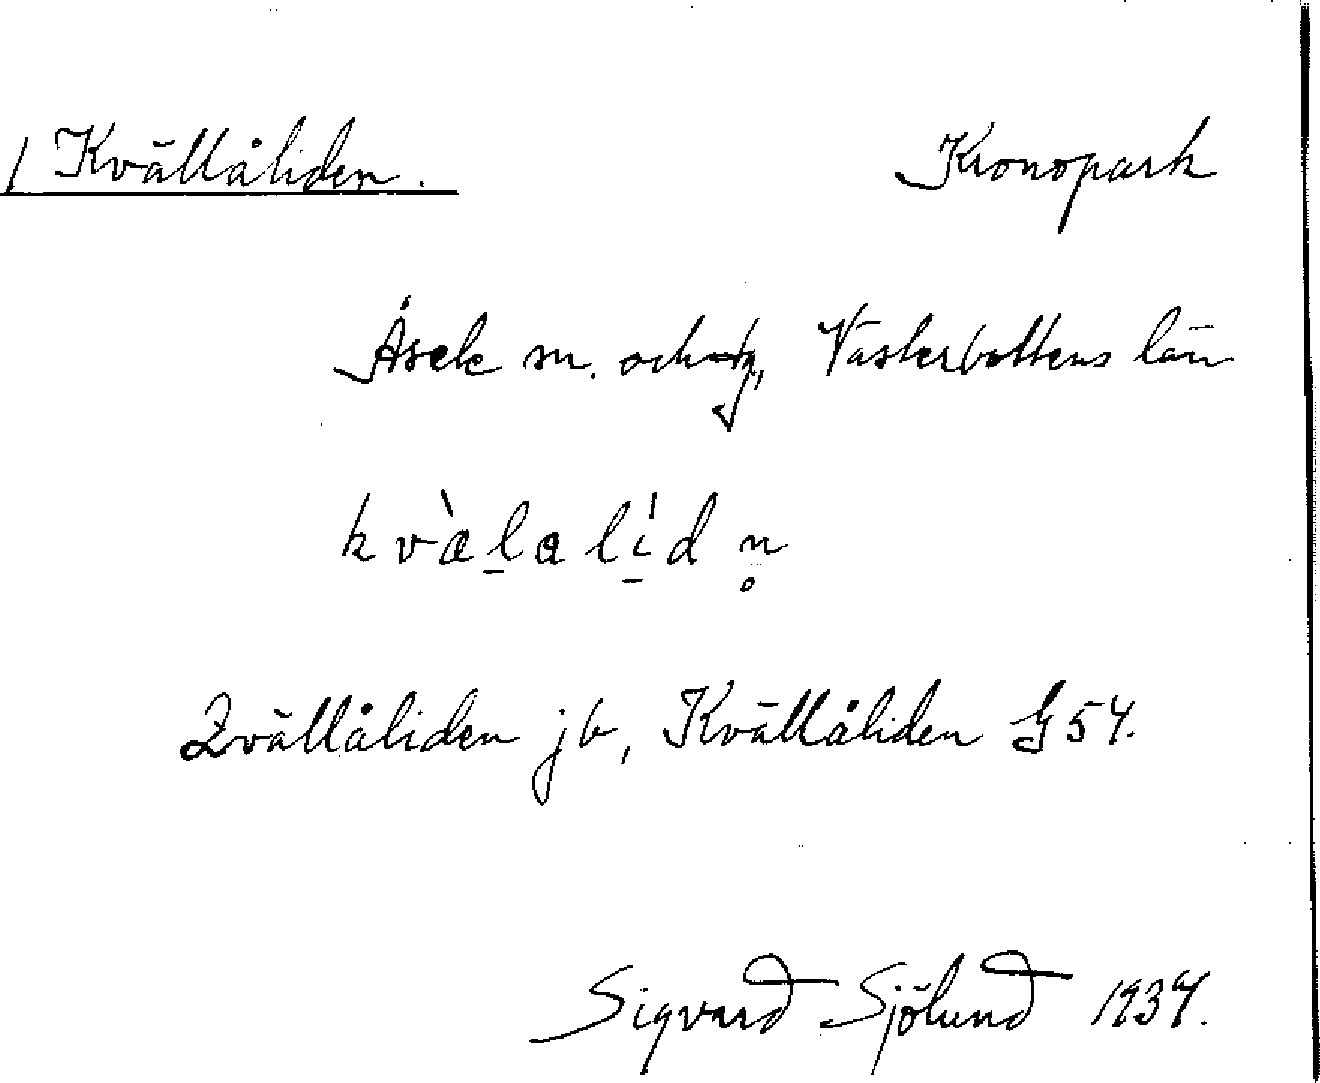 / Kvällåliden. Kronopark
Åsele sn. och tg, Västerbottens län
kvàlalídn̥
Qvällåliden jb, Kvällåliden G54.
Sigvard Sjölund 1937.